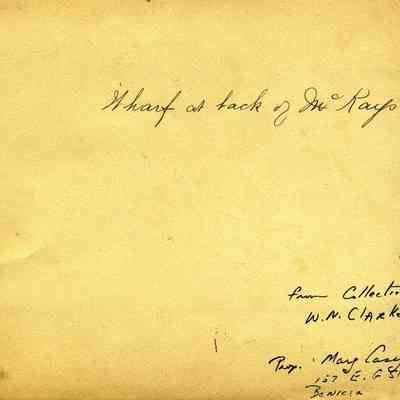 Wharf at back of McKays
from Collectio
W.N. Clarke
Prop. Mary Case
157 E. G St
Benicia